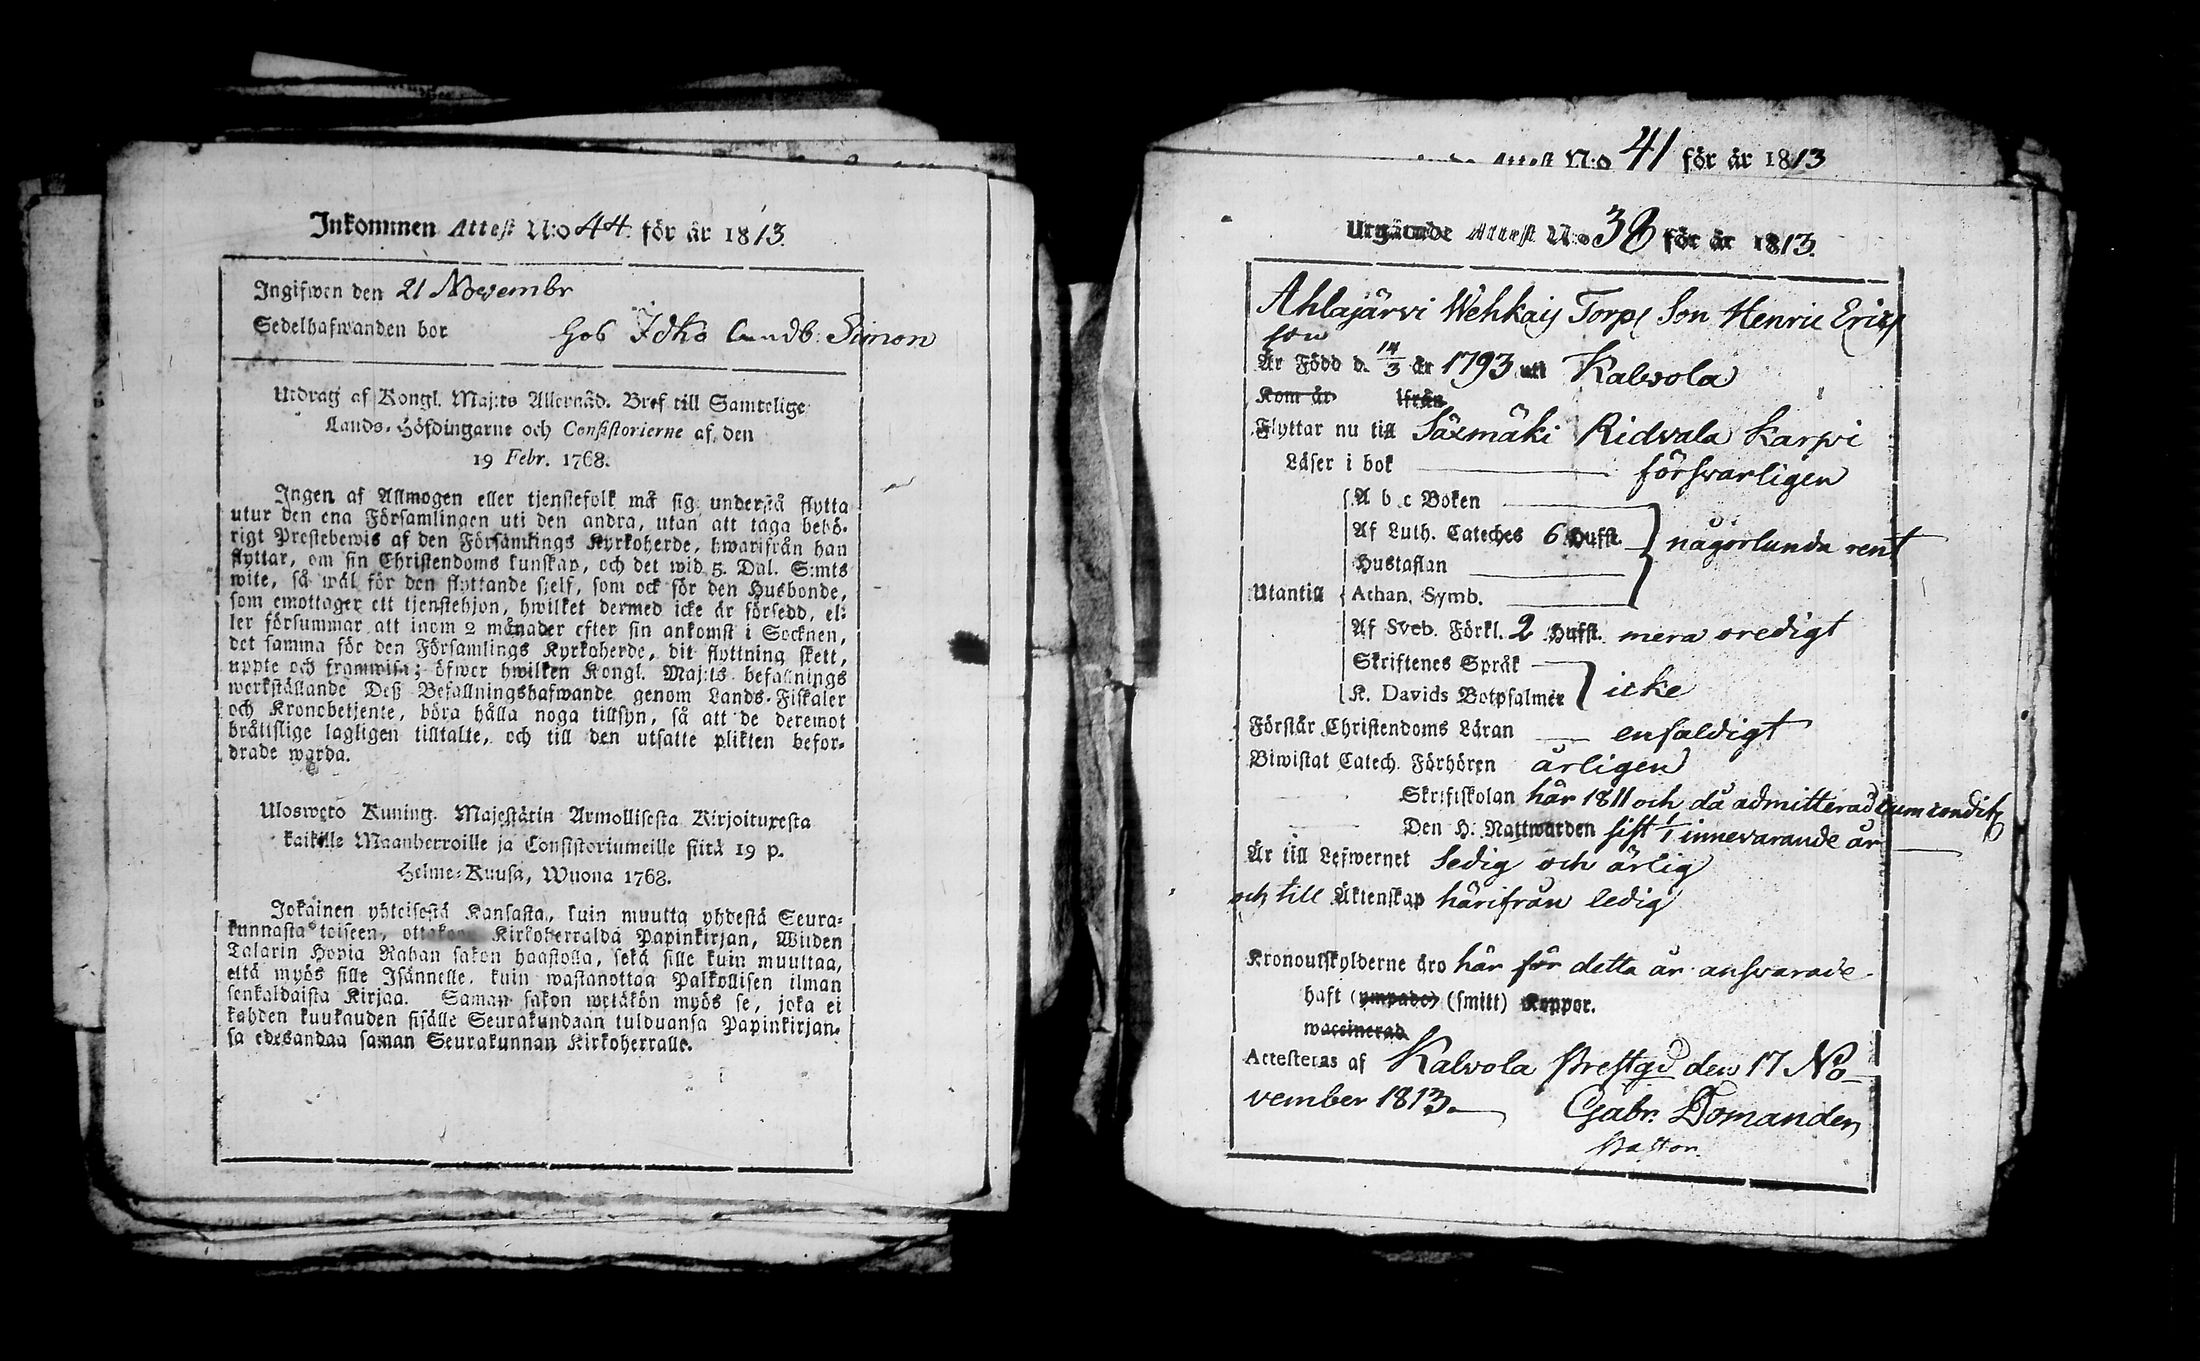 Inkommen Attest N:o 44. för år 1813.
Ingifwen den 21 Novembr
Sedelhafwanden bor hos Idko Landb: Simon
Utdrag af Kongl. Maj:ts Allernåd. Bref till Samtelige
Lands-Höfdingarne och Consistorierne af den
19 Febr. 1768.
Ingen af Allmogen eller tjenstefolk må sig understå flytta
utur den ena Församlingen uti den andra, utan att taga behö-
rigt Prestebewis af den Församlings Kyrkoherde, hwarifrån han
flyttar, om sin Christendoms kunskap, och det wid 5. Dal. S:mts
wite, så wäl för den flyttande sjelf, som ock för den Husbonde,
som emottager ett tjenstehjon, hwilket dermed icke är försedd, el-
ler försummar att inom 2 månader efter sin ankomst i Socknen,
det samma för den Församlings Kyrkoherde, dit flyttning skett,
uppte och framwisa; öfwer hwilken Kongl. Maj:ts befallnings
werkställande Deß Befallningshafwande genom Lands-Fiskaler
och Kronobetjente, böra hålla noga tillsyn, så att de deremot
bråttslige lagligen tilltalte, och till den utsatte plikten befor-
drade warda.
Ulosweto Kuning. Majestätin Armollisesta Kirjoituxesta
kaikille Maanherroille ja Consistoriumeille siitä 19 p.
Helme-Kuusa, Wuona 1768.
Jokainen yhteisestä Kansasta, kuin muutta yhdestä Seura-
kunnasta toiseen, ottakoon Kirkoherralda Papinkirjan, Wiiden
Talarin Hopia Rahan sakon haastolla, sekä sille kuin muuttaa,
että myös sille Isännelle, kuin wastanottaa Palkollisen ilman
senkaldaista Kirjaa. Saman sakon wetäkön myös se, joka ei
kahden kuukauden sisälle Seurakundaan tulduansa Papinkirjan-
sa edesandaa saman Seurakunnan Kirkoherralle.
Attest N:o 41 för år 1813
Utgående Attest N:o 38 för år 1813.
Ahlajärvi Wehkais Torps Son Henric Erics
son
Är Född d. 14/3 år 1793 uti Kalvola
Kom år ifrån
Flyttar nu till Säxmäki Ridvala Karpi
Läser i bok försvarligen
A b c Boken
Af Luth. Cateches 6 Hufst. någorlunda rent
Hustaflan
Utantill Athan. Symb.
Af Sveb. Förkl. 2 Hufst. mera oredigt
Skriftenes Språk
K. Davids Botpsalmer icke
Förstår Christendoms Läran enfaldigt
Biwistat Catech. Förhören årligen
Skriftskolan här 1811 och då admitterad cum condit:
Den H. Nattwarden sist 1/1 innevarande år
Är till Lefwernet Sedig och ärlig
och till Äktenskap härifrån ledig
Kronoutskylderne äro här för detta år ansvarade
haft (ympade) (smitt) Koppor.
waccinerad
Attesteras af Kalvola Prestgd den 17 No-
vember 1813. Gabr. Domander
Pastor.